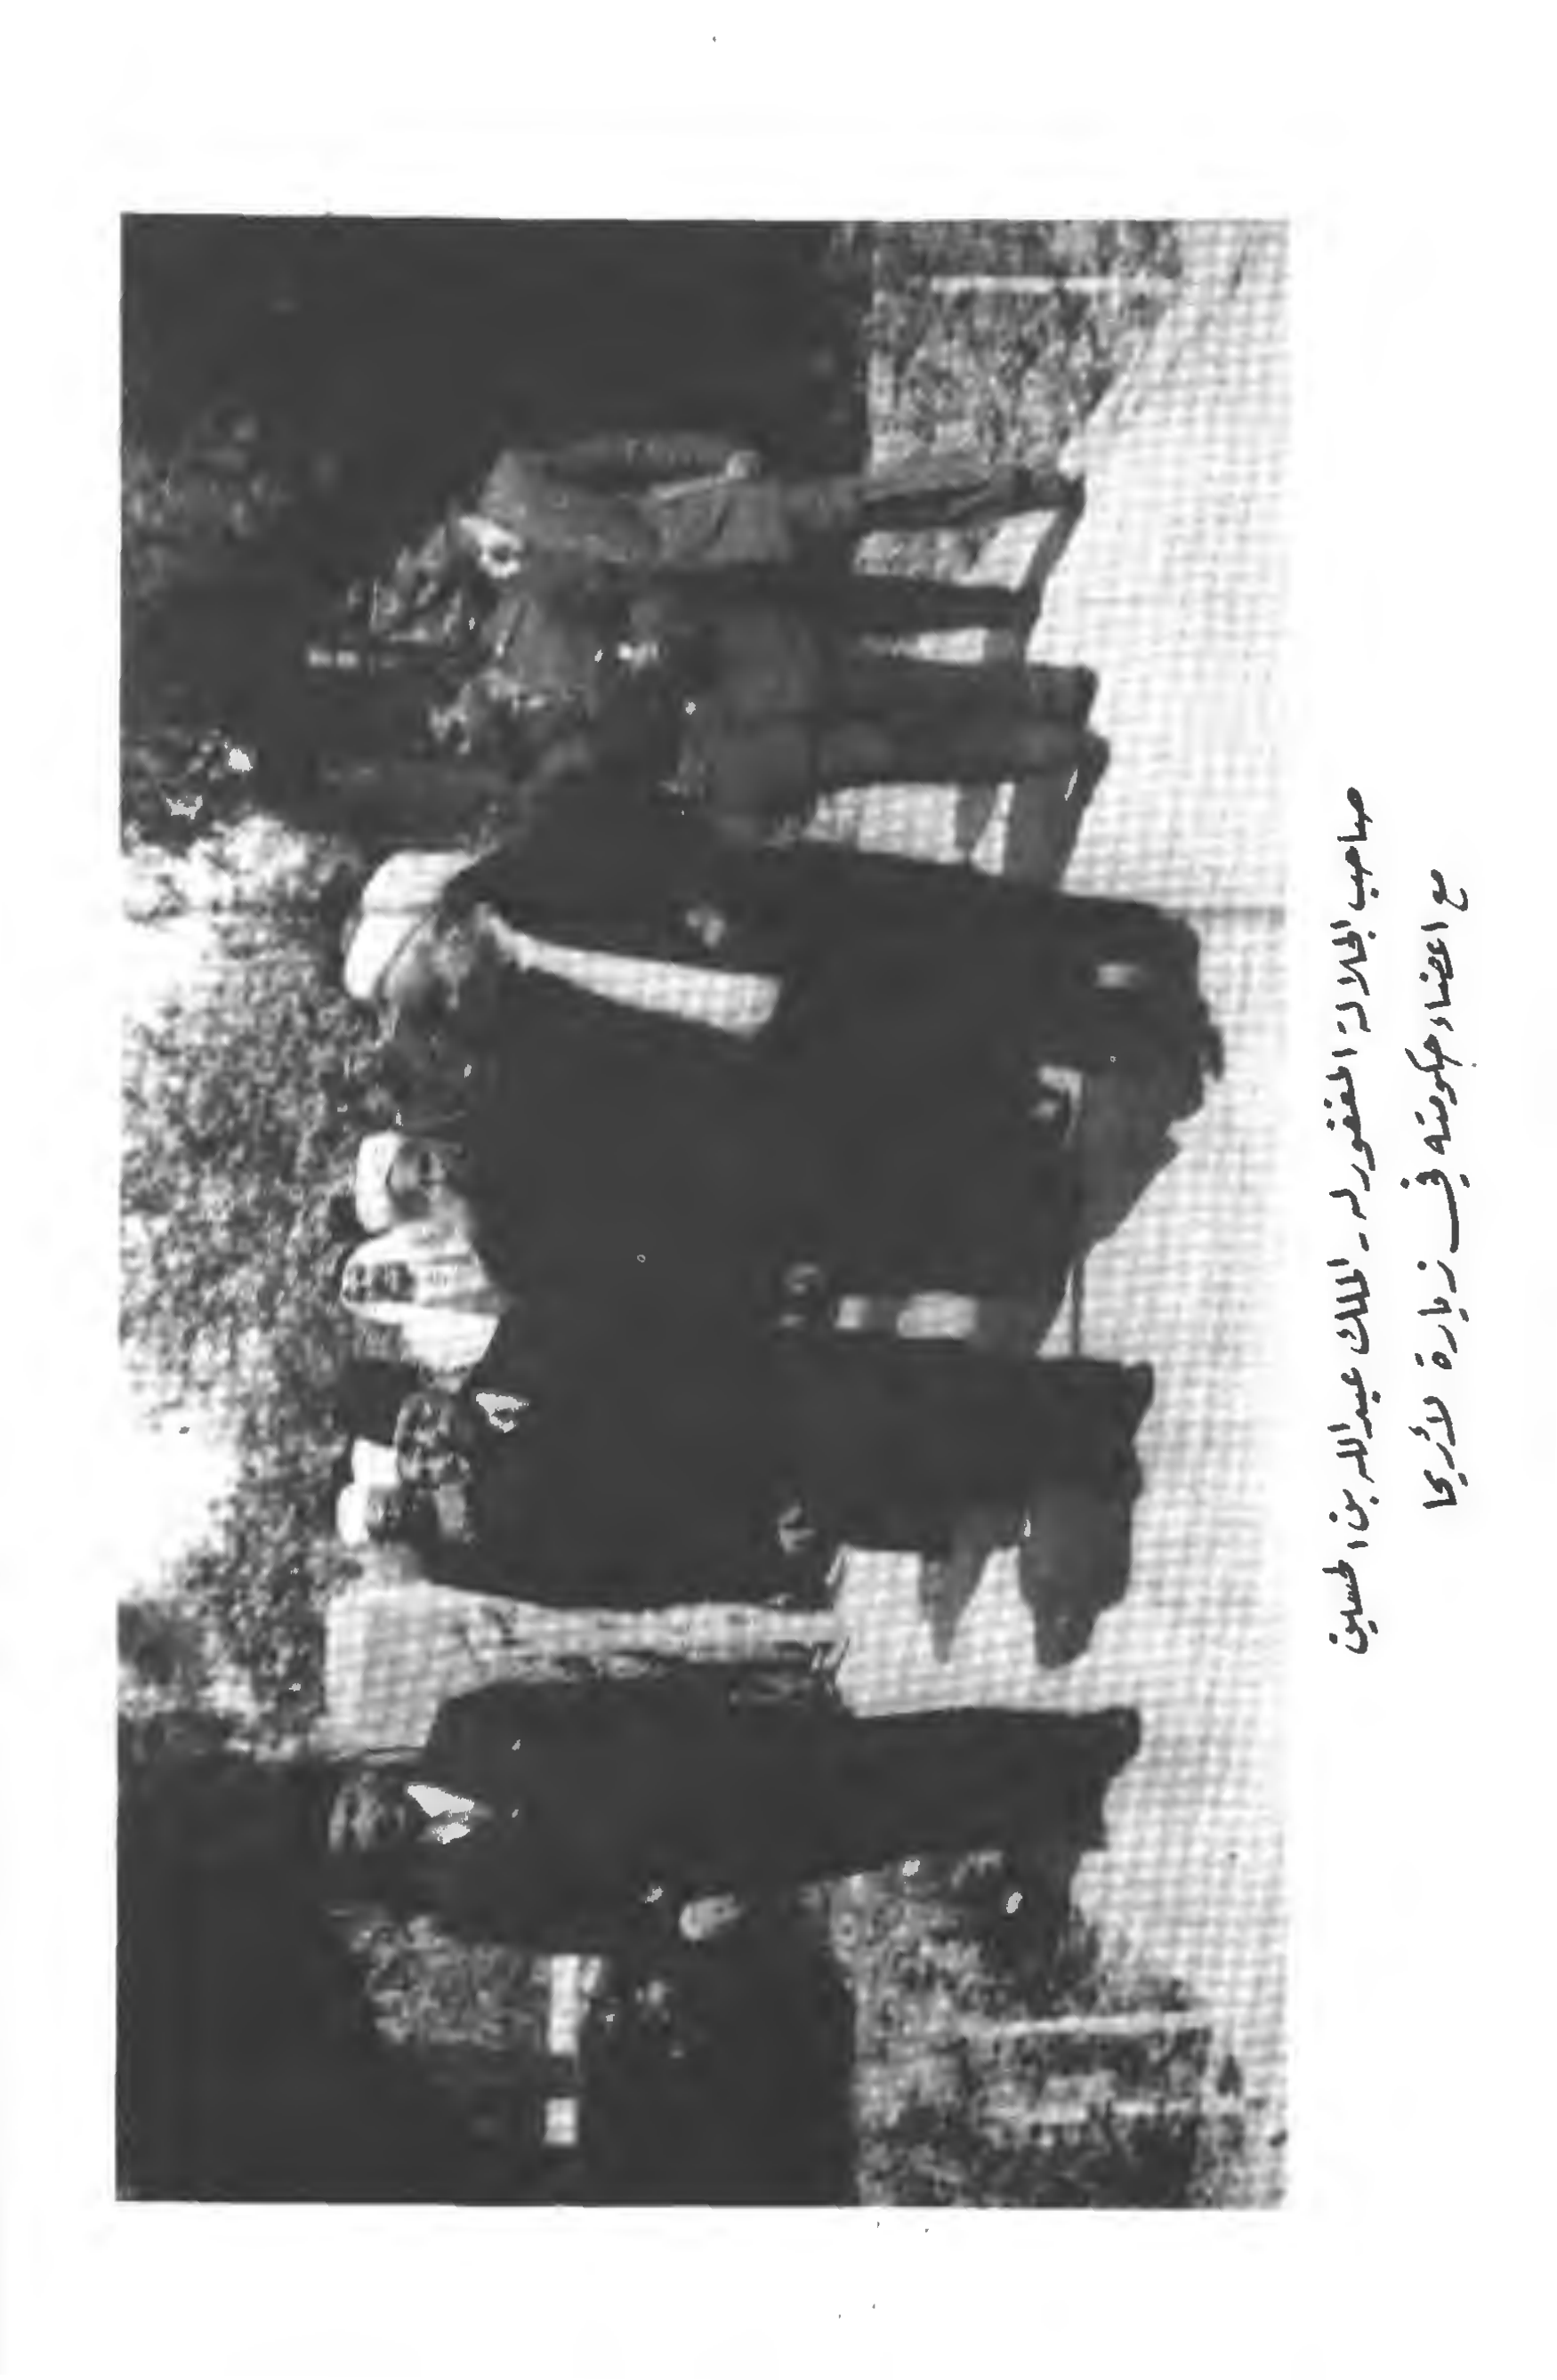 صاحب الجلالة المغفور له - الملك عبد الله بن الحسين
مع اعضاء حكومته في زيارة لأريحا